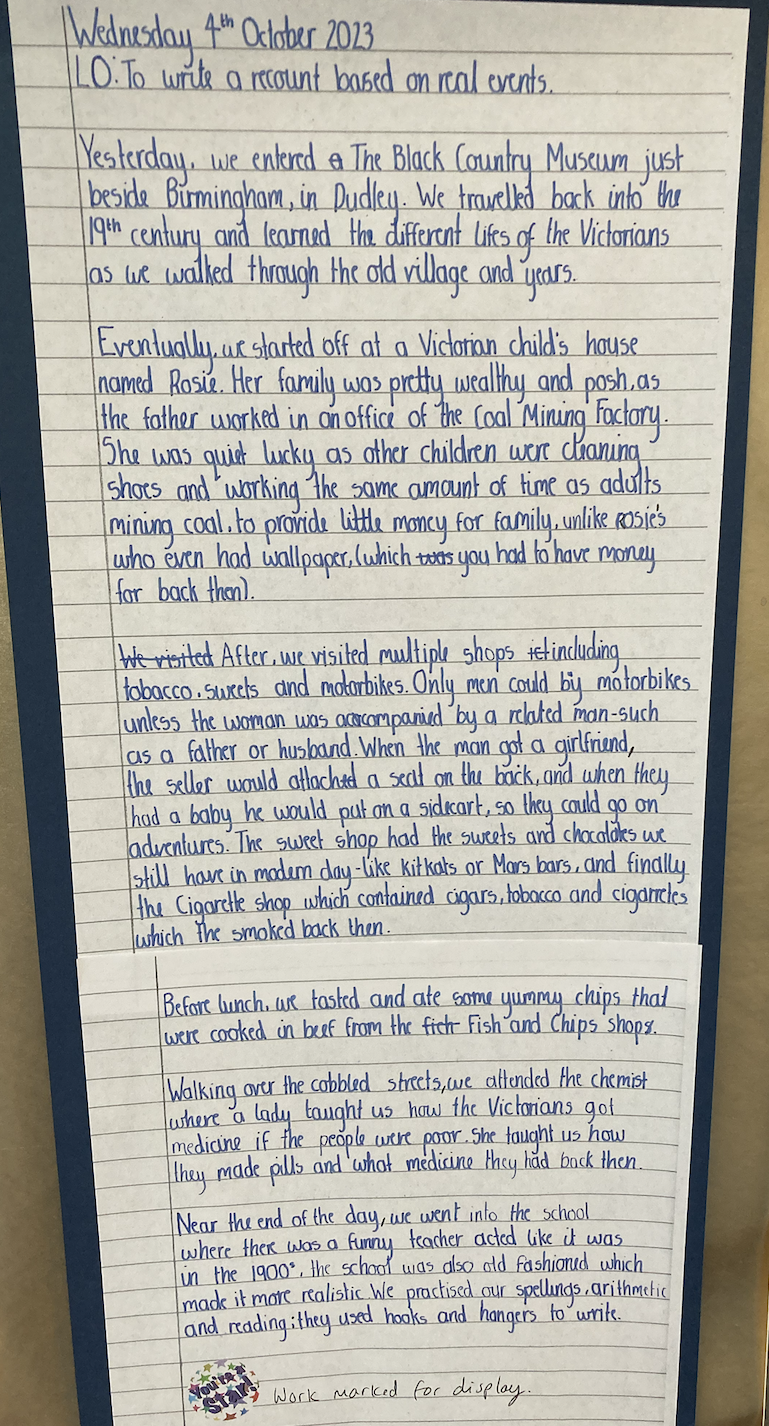 Wednesday 4th October 2023
LO: To write a recount based on real events.
Yesterday, we entered a The Black Country Museum just
beside Birmingham, in Dudley. We travelled back into the
19th century and learned the different lifes of the Victorians
as we walked through the old village and years.
Eventually, we started off at a Victorian child's house
named Rosie. Her family was pretty wealthy and posh, as
the father worked in an office of the Coal Mining Factory.
She was quiet lucky as other children were cleaning
shoes and working the same amount of time as adults
mining coal, to provide little money for family, unlike Rosie's
who even had wallpaper, (which was you had to have money
for back then).
We visited After, we visited multiple shops including
tobacco, sweets and motorbikes. Only men could biy motorbikes
unless the woman was accompanied by a related man-such
as a father or husband. When the man got a girlfriend,
the seller would attached a seat on the back, and when they
had a baby he would put on a sidecart, so they could go on
adventures. The sweet shop had the sweets and chocolates we
still have in modern day-like kitkats or Mars bars, and finally
the Cigarette shop which contained cigars, tobacco and cigarretes
which the smoked back then.
Before lunch, we tasted and ate some yummy chips that
were cooked in beef from the fich Fish and Chips shops.
Walking over the cobbled streets, we attended the chemist
where a lady taught us how the Victorians got
medicine if the people were poor. She taught us how
they made pills and what medicine they had back then.
Near the end of the day, we went into the school
where ther was a funny teacher acted like it was
in the 1900s, the school was also old fashioned which
made it more realistic We practised our spellings, arithmetic
and reading: they used hooks and hangers to write.
You're a Star!
Work marked for display.